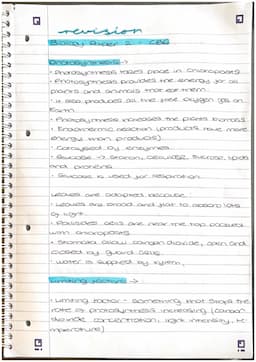 revision
Biology Paper 2 - CB6
Photosynthesis →
• Photosynthesis takes place in chloroplasts
• Photosynthesis provides the energy for all
plants and animals that eat them
• It also produces all the free oxygen gas on
Earth
• Photosynthesis increases the plants biomass
• Endothermic reaction (products have more
energy than products)
• Catalysed by enzymes
• Glucose → starch, cellulose, sucrose, lipids
and proteins
• Glucose is used for respiration
Leaves are adapted because:
• Leaves are broad and flat to absorb lots
of light
• Palisades cells are near the top packed
with chloroplasts
• Stomata allow carbon dioxide, open and
closed by guard cells
• Water is supplied by xylem
Limiting factors →
• Limiting factor - something that stops the
rate of photosynthesis increasing (carbon
dioxide concentration, light intensity, te-
mperature)